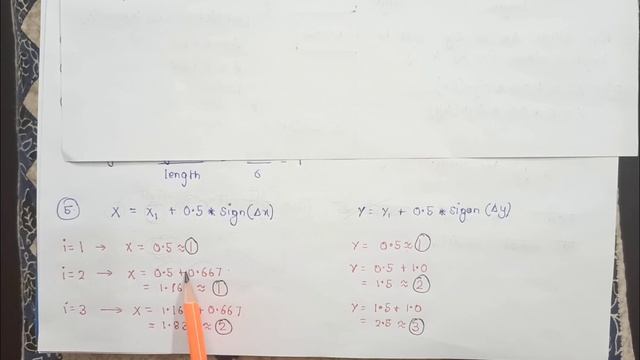 length 6
⑤ X = X₁ + 0.5 * Sign(Δx) Y = Y₁ + 0.5 * sigen (Δy)
i=1 → X = 0.5 ≈ ① Y = 0.5 ≈ ①
i=2 → X = 0.5 + 0.667 Y = 0.5 + 1.0
= 1.16 ≈ ① = 1.5 ≈ ②
i=3 → X = 1.16 + 0.667 Y = 1.5 + 1.0
= 1.82 ≈ ② = 2.5 ≈ ③